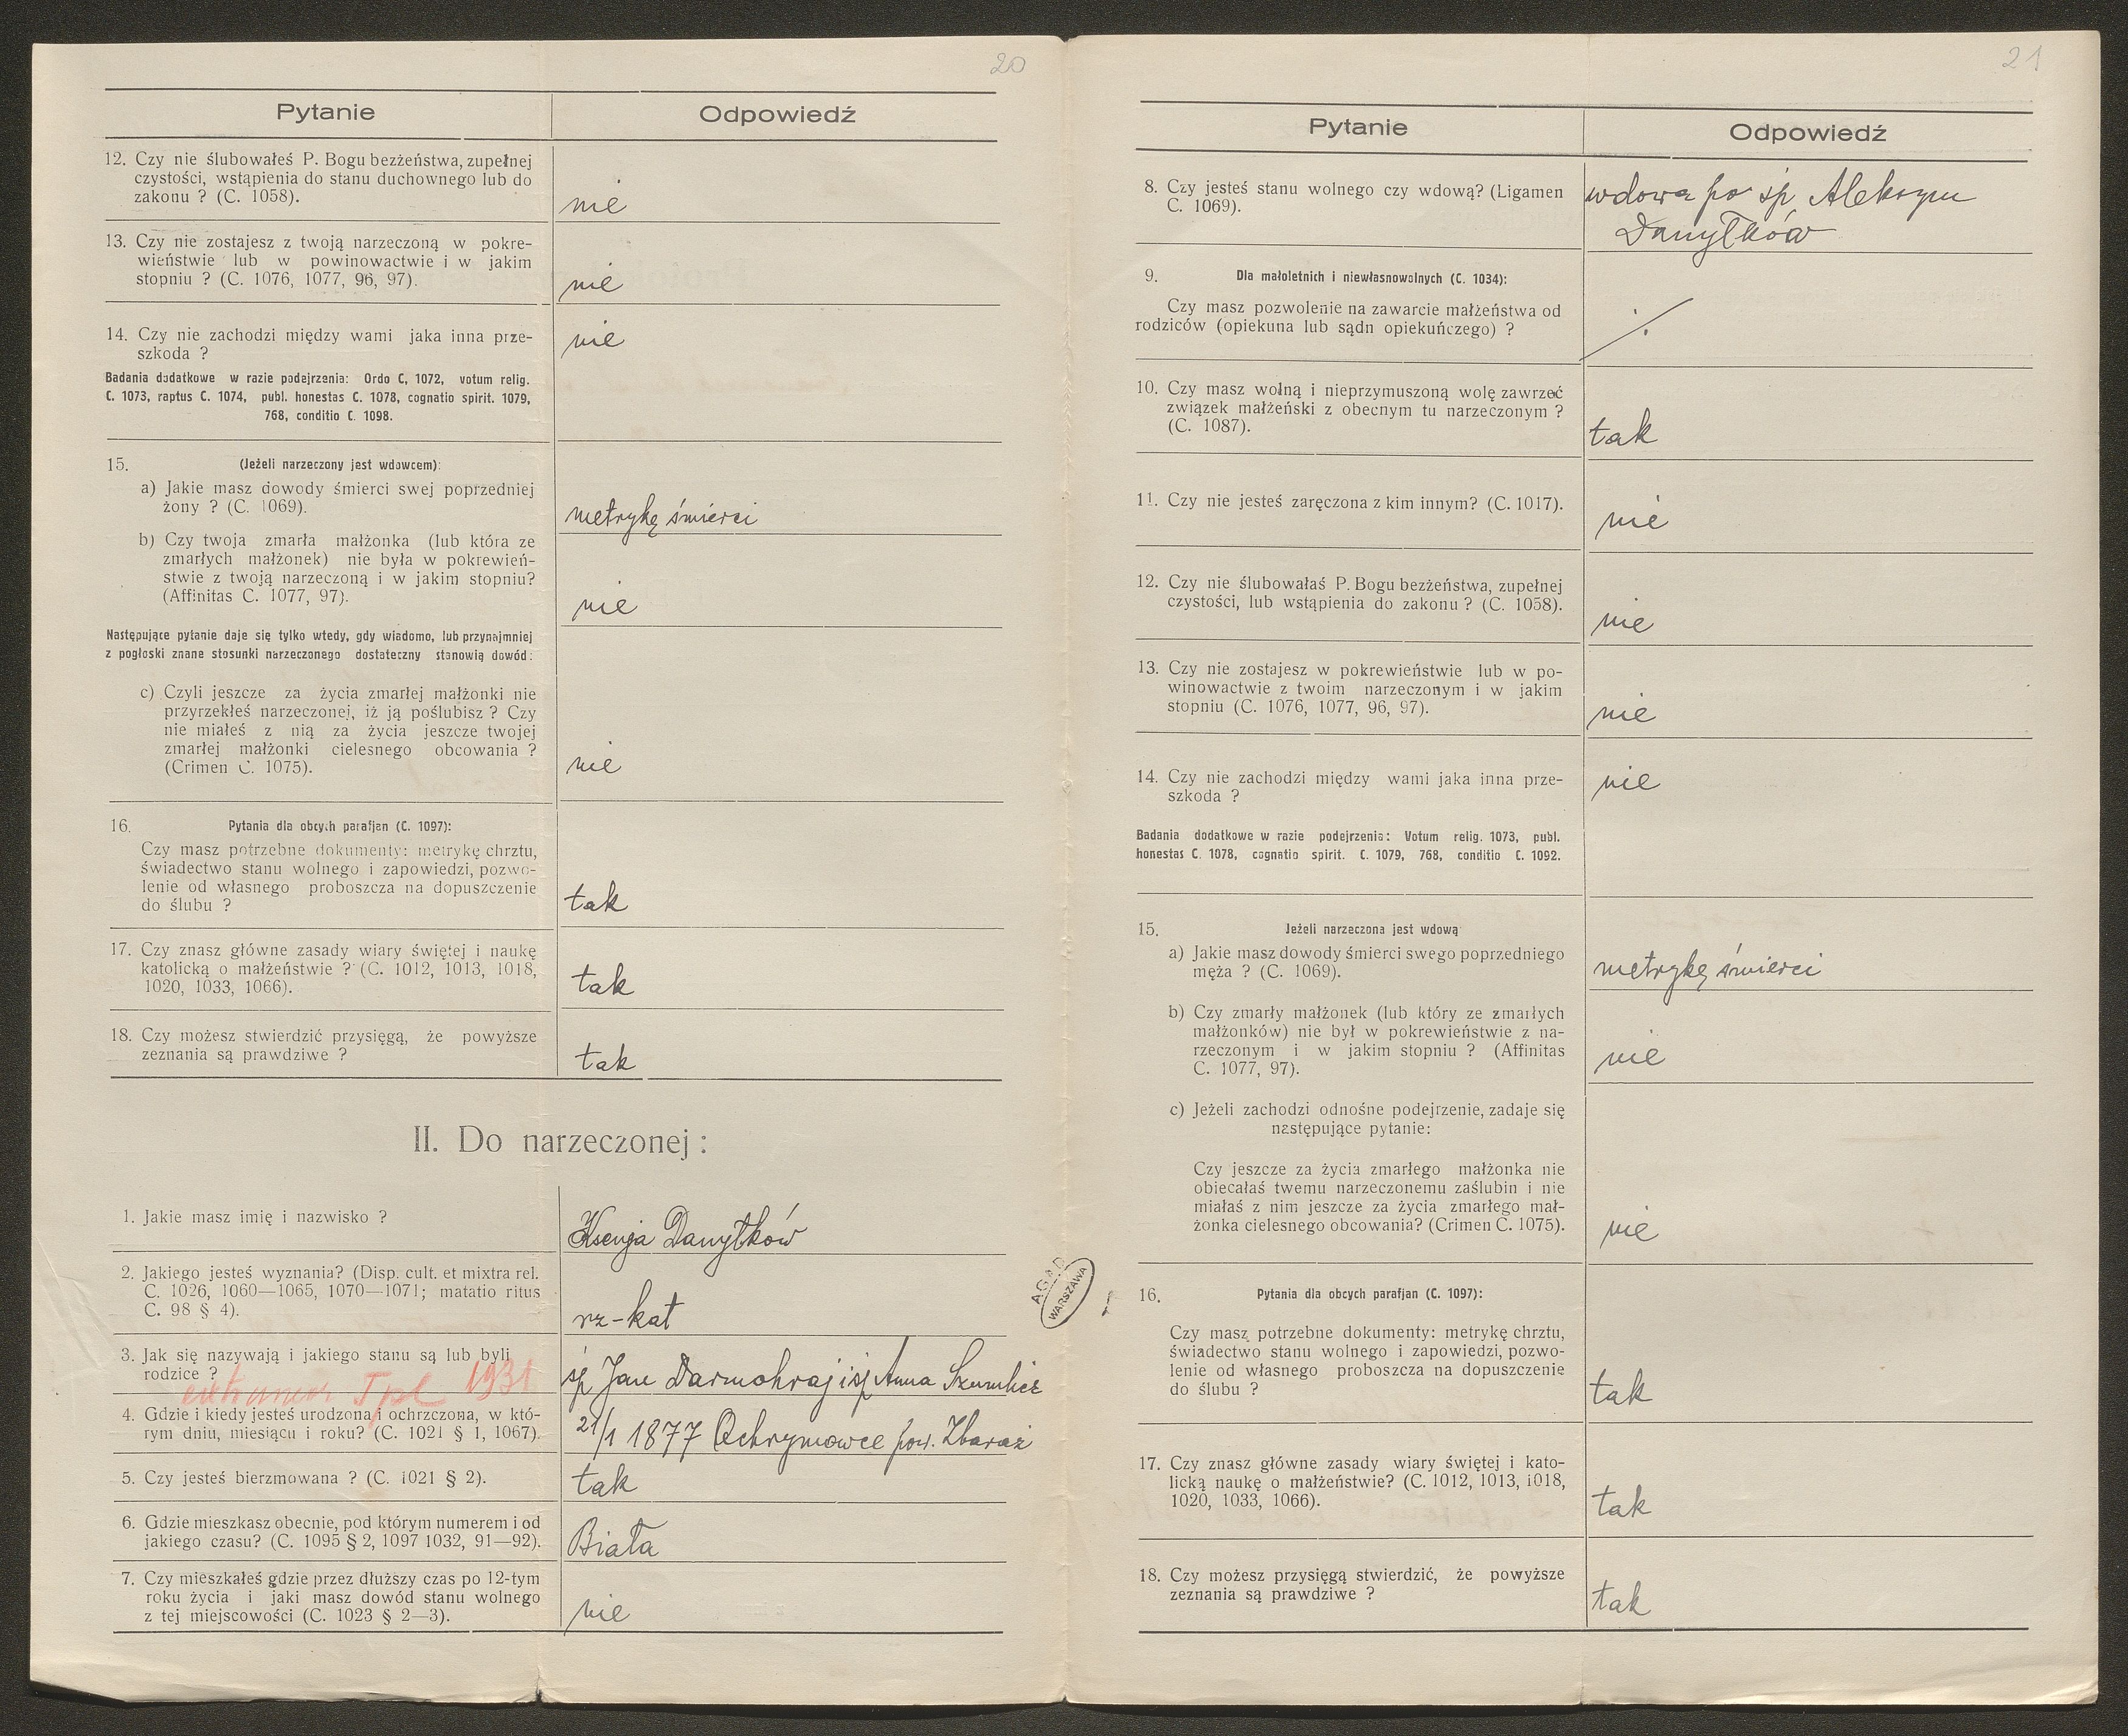 20
Pytanie
Odpowiedź
12. Czy nie ślubowałeś P. Bogu bezżeństwa, zupełnej
czystości, wstąpienia do stanu duchownego lub do
zakonu ? (C. 1058).
nie
13. Czy nie zostajesz z twoją narzeczoną w pokre-
wieństwie lub w powinowactwie i w jakim
stopniu ? (C. 1076, 1077, 96, 97).
nie
14. Czy nie zachodzi między wami jaka inna prze-
szkoda ?
nie
Badania dodatkowe w razie podejrzenia: Ordo C, 1072, votum relig.
C. 1073, raptus C. 1074, publ. honestas C. 1078, cognatio spirit. 1079,
768, conditio C. 1098.
15. (Jeżeli narzeczony jest wdowcem):
a) Jakie masz dowody śmierci swej poprzedniej
żony ? (C. 1069).
metrykę śmierci
b) Czy twoja zmarła małżonka (lub która ze
zmarłych małżonek) nie była w pokrewień-
stwie z twoją narzeczoną i w jakim stopniu?
(Affinitas C. 1077, 97).
nie
Następujące pytanie daje się tylko wtedy, gdy wiadomo, lub przynajmniej
z pogłoski znane stosunki narzeczonego dostateczny stanowią dowód:
c) Czyli jeszcze za życia zmarłej małżonki nie
przyrzekłeś narzeczonej, iż ją poślubisz ? Czy
nie miałeś z nią za życia jeszcze twojej
zmarłej małżonki cielesnego obcowania ?
(Crimen C. 1075).
nie
16. Pytania dla obcych parafjan (C. 1097):
Czy masz potrzebne dokumenty: metrykę chrztu,
świadectwo stanu wolnego i zapowiedzi, pozwo-
lenie od własnego proboszcza na dopuszczenie
do ślubu ?
tak
17. Czy znasz główne zasady wiary świętej i naukę
katolicką o małżeństwie ? (C. 1012, 1013, 1018,
1020, 1033, 1066).
tak
18. Czy możesz stwierdzić przysięgą, że powyższe
zeznania są prawdziwe ?
tak
II. Do narzeczonej :
1. Jakie masz imię i nazwisko ?
Ksenja Danyłków
2. Jakiego jesteś wyznania? (Disp. cult. et mixtra rel.
C. 1026, 1060—1065, 1070—1071; matatio ritus
C. 98 § 4).
rz-kat
3. Jak się nazywają i jakiego stanu są lub byli
rodzice ?
śp Jan Darmohraj i śp Anna
Tpl 1931
4. Gdzie i kiedy jesteś urodzona i ochrzczona, w któ-
rym dniu, miesiącu i roku? (C. 1021 § 1, 1067).
21/1 1877 Ochrymowce pow. Zbaraż
5. Czy jesteś bierzmowana ? (C. 1021 § 2).
tak
6. Gdzie mieszkasz obecnie, pod którym numerem i od
jakiego czasu? (C. 1095 § 2, 1097 1032, 91—92).
Biała
7. Czy mieszkałeś gdzie przez dłuższy czas po 12-tym
roku życia i jaki masz dowód stanu wolnego
z tej miejscowości (C. 1023 § 2—3).
nie
AGAD
WARSZAWA
21
Pytanie
Odpowiedź
8. Czy jesteś stanu wolnego czy wdową? (Ligamen
C. 1069).
wdowa po śp Aleksym
Danyłków
9. Dla małoletnich i niewłasnowolnych (C. 1034):
Czy masz pozwolenie na zawarcie małżeństwa od
rodziców (opiekuna lub sądn opiekuńczego) ?
10. Czy masz wolną i nieprzymuszoną wolę zawrzeć
związek małżeński z obecnym tu narzeczonym ?
(C. 1087).
tak
11. Czy nie jesteś zaręczona z kim innym? (C. 1017).
nie
12. Czy nie ślubowałaś P. Bogu bezżeństwa, zupełnej
czystości, lub wstąpienia do zakonu ? (C. 1058).
nie
13. Czy nie zostajesz w pokrewieństwie lub w po-
winowactwie z twoim narzeczonym i w jakim
stopniu (C. 1076, 1077, 96, 97).
nie
14. Czy nie zachodzi między wami jaka inna prze-
szkoda ?
nie
Badania dodatkowe w razie podejrzenia: Votum relig. 1073, publ.
honestas C. 1078, cognatio spirit. C. 1079, 768, conditio C. 1092.
15. Jeżeli narzeczona jest wdową
a) Jakie masz dowody śmierci swego poprzedniego
męża ? (C. 1069).
metrykę śmierci
b) Czy zmarły małżonek (lub który ze zmarłych
małżonków) nie był w pokrewieństwie z na-
rzeczonym i w jakim stopniu ? (Affinitas
C. 1077, 97).
nie
c) Jeżeli zachodzi odnośne podejrzenie, zadaje się
następujące pytanie:
Czy jeszcze za życia zmarłego małżonka nie
obiecałaś twemu narzeczonemu zaślubin i nie
miałaś z nim jeszcze za życia zmarłego mał-
żonka cielesnego obcowania? (Crimen C. 1075).
nie
16. Pytania dla obcych parafjan (C. 1097):
Czy masz potrzebne dokumenty: metrykę chrztu,
świadectwo stanu wolnego i zapowiedzi, pozwo-
lenie od własnego proboszcza na dopuszczenie
do ślubu ?
tak
17. Czy znasz główne zasady wiary świętej i kato-
licką naukę o małżeństwie? (C. 1012, 1013, 1018,
1020, 1033, 1066).
tak
18. Czy możesz przysięgą stwierdzić, że powyższe
zeznania są prawdziwe ?
tak